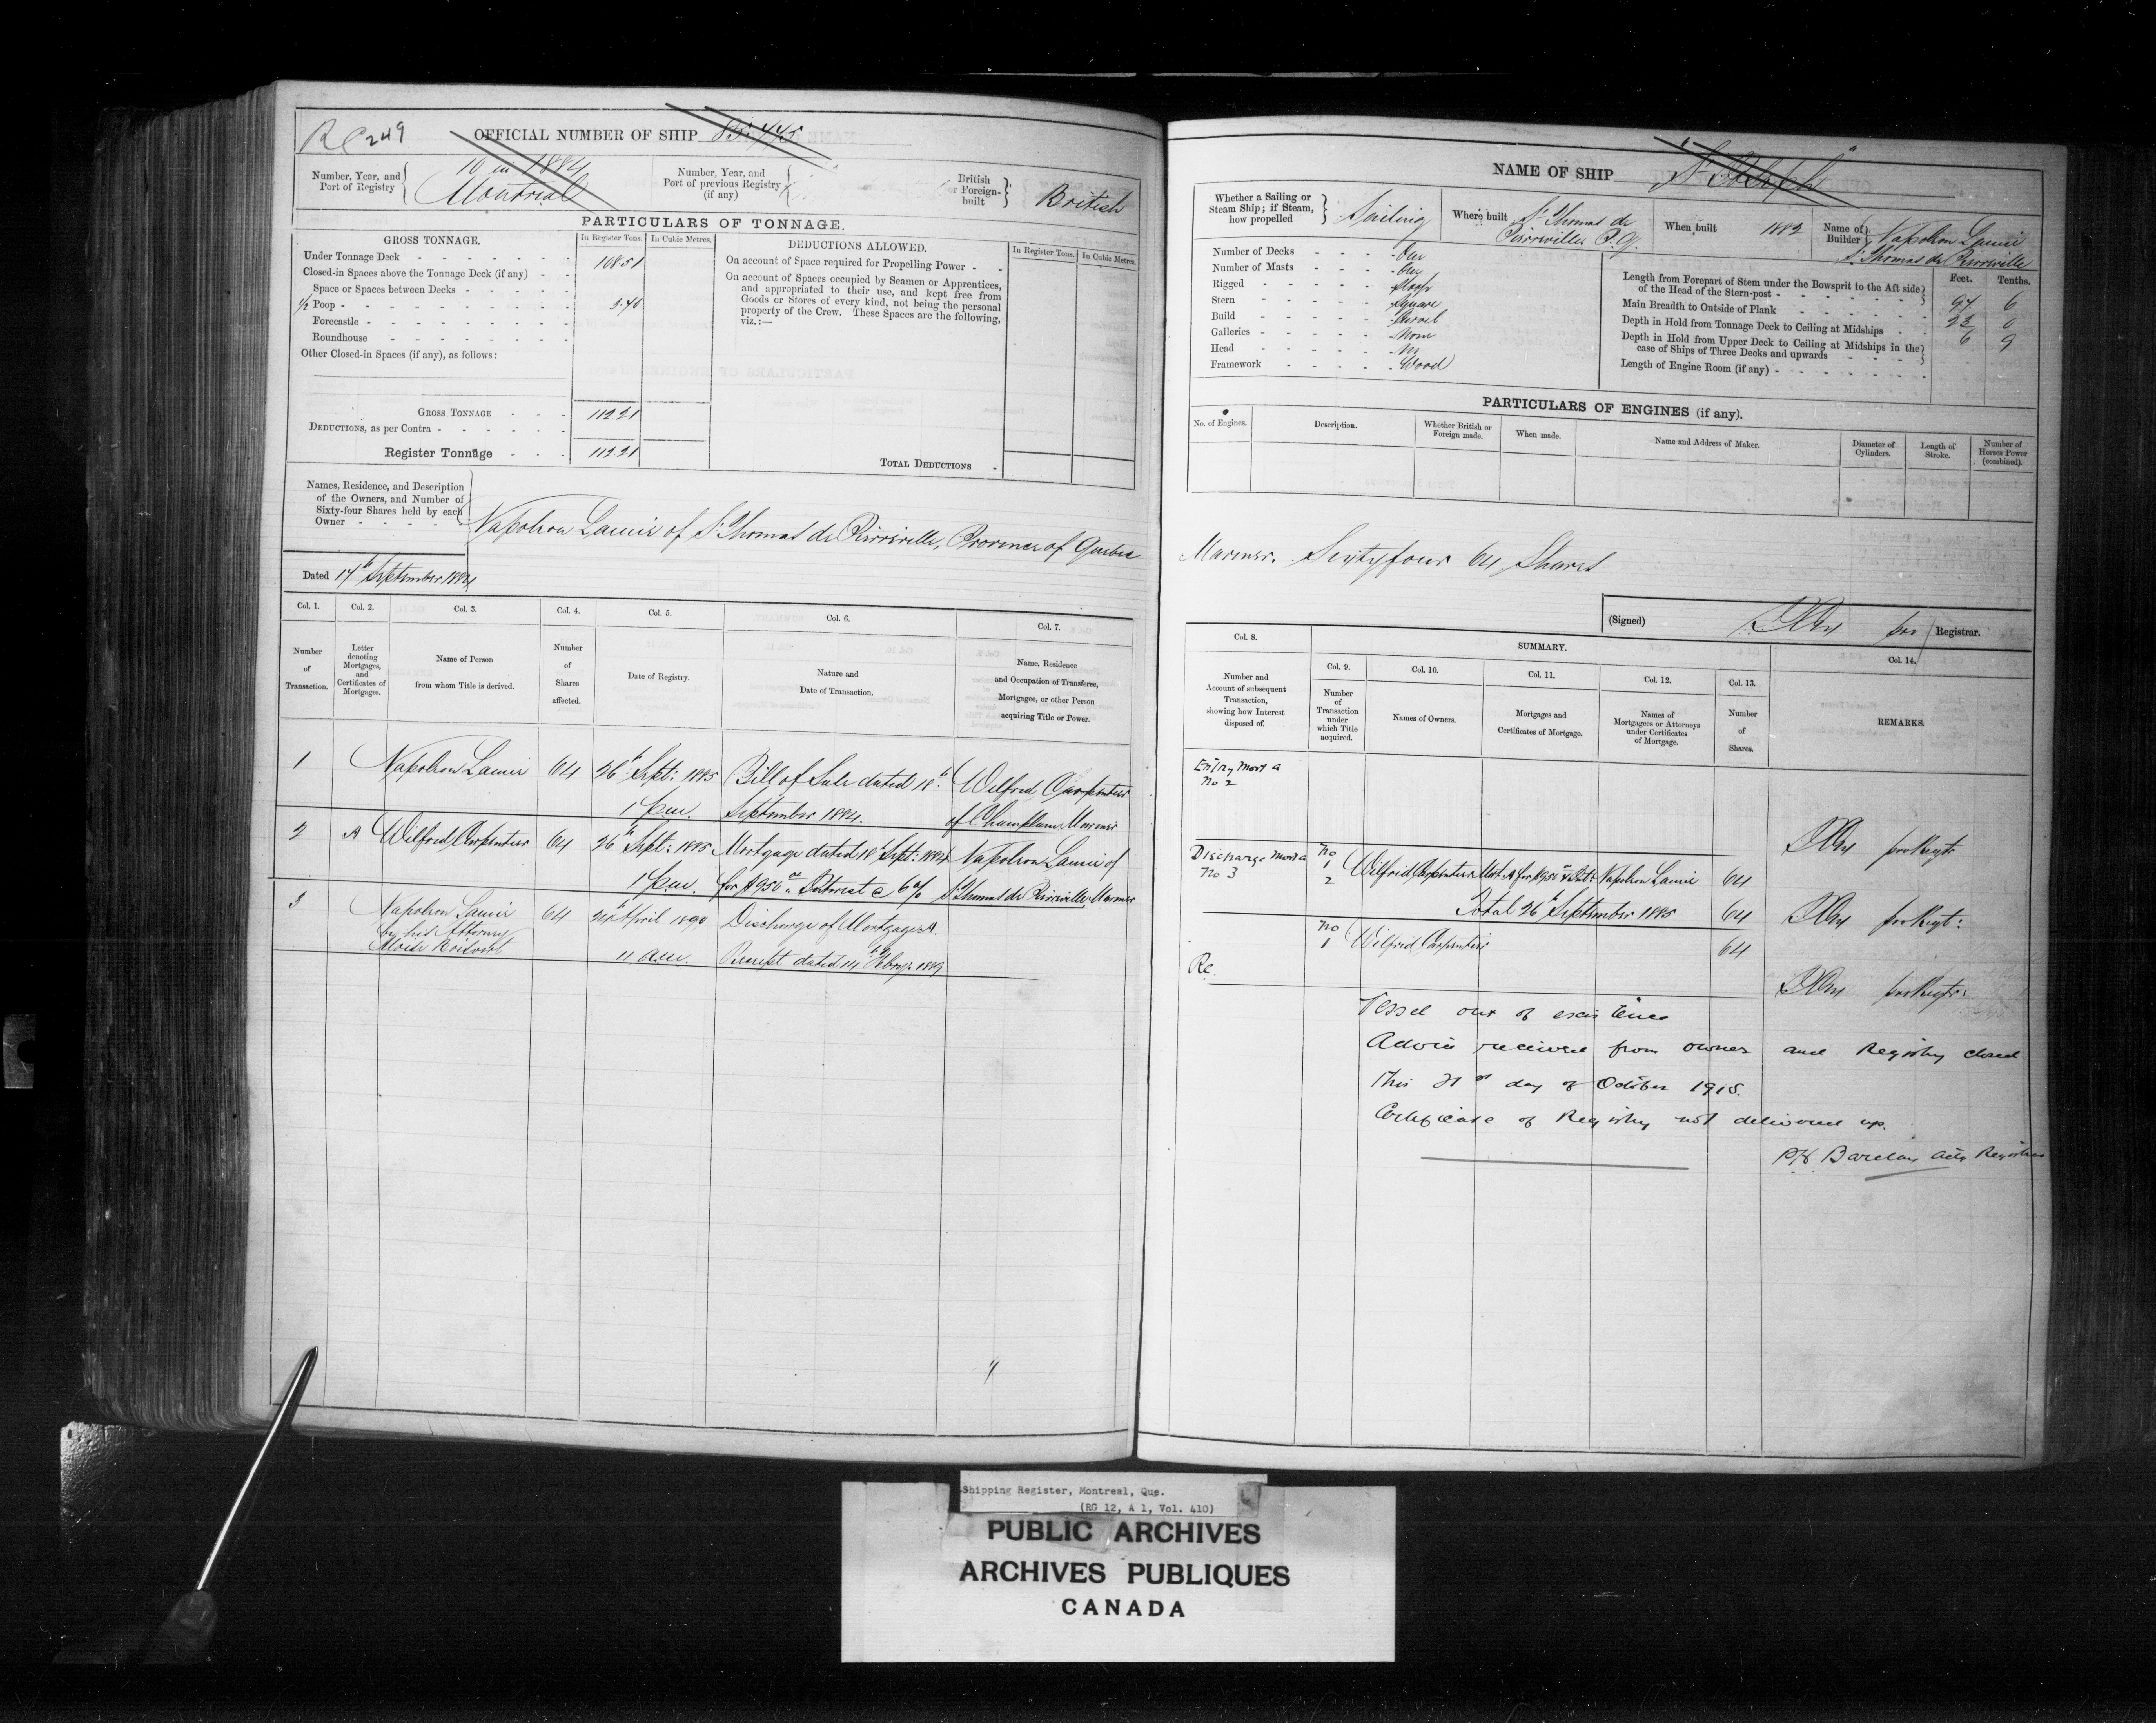 Rc 249
OFFICIAL NUMBER OF SHIP 85.445
Number, Year, and Port of Registry
10 in 1884
Montreal
Number, Year, and Port of previous Registry (if any)
British or Foreign-built
British
PARTICULARS OF TONNAGE.
GROSS TONNAGE.
In Register Tons.
In Cubic Metres.
DEDUCTIONS ALLOWED.
In Register Tons.
In Cubic Metres.
Under Tonnage Deck 108.51
Closed-in Spaces above the Tonnage Deck (if any)
Space or Spaces between Decks
1/2 Poop 3.70
Forecastle
Roundhouse
Other Closed-in Spaces (if any), as follows:
On account of Space required for Propelling Power
On account of Spaces occupied by Seamen or Apprentices,
and appropriated to their use, and kept free from
Goods or Stores of every kind, not being the personal
property of the Crew. These Spaces are the following,
viz.:—
GROSS TONNAGE 112.21
DEDUCTIONS, as per Contra
Register Tonnage 112.21
TOTAL DEDUCTIONS
Names, Residence, and Description
of the Owners, and Number of
Sixty-four Shares held by each
Owner
Napoleon Lamie of St Thomas de Pierreville, Province of Quebec
Dated 17th September 1884
Col. 1.
Col. 2.
Col. 3.
Col. 4.
Col. 5.
Col. 6.
Col. 7.
Number of Transaction.
Letter denoting Mortgages, and Certificates of Mortgages.
Name of Person from whom Title is derived.
Number of Shares affected.
Date of Registry.
Nature and Date of Transaction.
Name, Residence and Occupation of Transferee, Mortgagee, or other Person acquiring Title or Power.
1 Napoleon Lamie 64 26th Sept: 1885 Bill of Sale dated 18th Wilfred Carpentier
1 p.m. September 1884. of Champlain Mariner
2 A Wilfred Carpentier 64 26th Sept: 1885 Mortgage dated 18th Sept: 1884 Napoleon Lamie of
1 p.m. for $950 00 Interest @ 6 % St Thomas de Pierreville Mariner
3 Napoleon Lamie 64 April 1899 Discharge of Mortgage A.
by his Attorney
Moise Boisvert 11 a.m. Receipt dated 14th Feby: 1889
NAME OF SHIP "St Joseph"
Whether a Sailing or Steam Ship; if Steam, how propelled
Sailing
Where built St Thomas de
Pierreville P.Q.
When built 1882
Name of Builder Napoleon Lamie
St Thomas de Pierreville
Number of Decks One
Number of Masts One
Rigged Sloop
Stern Square
Build Carvel
Galleries None
Head No
Framework Wood
Feet. Tenths.
Length from Forepart of Stem under the Bowsprit to the Aft side
of the Head of the Stern-post 97 6
Main Breadth to Outside of Plank 23 0
Depth in Hold from Tonnage Deck to Ceiling at Midships 6 9
Depth in Hold from Upper Deck to Ceiling at Midships in the
case of Ships of Three Decks and upwards
Length of Engine Room (if any)
PARTICULARS OF ENGINES (if any).
No. of Engines.
Description.
Whether British or Foreign made.
When made.
Name and Address of Maker.
Diameter of Cylinders.
Length of Stroke.
Number of Horses Power (combined).
Mariner. Sixty four 64 Shares
(Signed) for Registrar.
Col. 8.
SUMMARY.
Col. 9.
Col. 10.
Col. 11.
Col. 12.
Col. 13.
Col. 14.
Number and Account of subsequent Transaction, showing how Interest disposed of.
Number of Transaction under which Title acquired.
Names of Owners.
Mortgages and Certificates of Mortgage.
Names of Mortgagees or Attorneys under Certificates of Mortgage.
Number of Shares.
REMARKS.
Entry Mort A
No 2
for Regtr
Discharge Mort A
No 3
No
1
2 Wilfred Carpentier Mort. A for $950 & Int: Napoleon Lamie 64
Total 26th September 1885 64
for Regtr:
No
1 Wilfred Carpentier 64
Re.
for Regtr:
Vessel out of existence
Advice received from owner and Registry closed
This 21st day of October 1918.
Certificate of Registry not delivered up.
Barclay Actg Registrar
Shipping Register, Montreal, Que.
(RG 12, A 1, Vol. 410)
PUBLIC ARCHIVES
ARCHIVES PUBLIQUES
CANADA